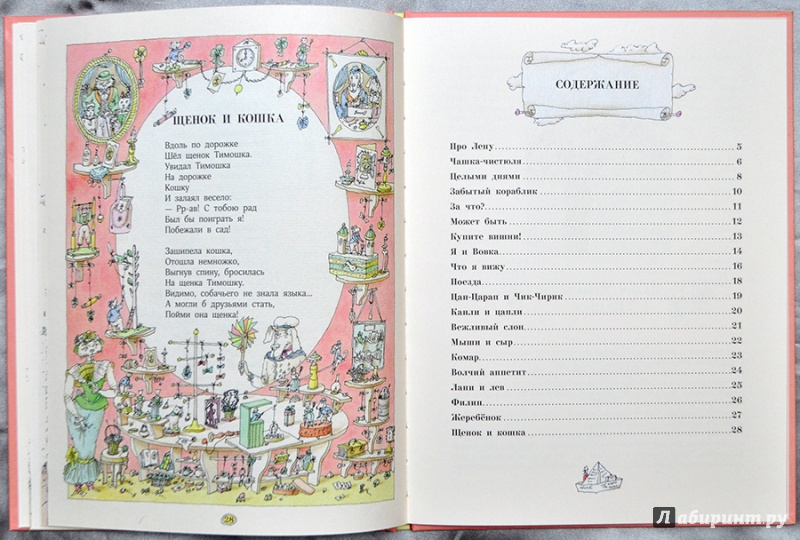 ЩЕНОК И КОШКА
Вдоль по дорожке
Шёл щенок Тимошка.
Увидал Тимошка
На дорожке
Кошку
И залаял весело:
— Рр-ав! С тобою рад
Был бы поиграть я!
Побежали в сад!
Зашипела кошка,
Отошла немножко,
Выгнув спину, бросилась
На щенка Тимошку.
Видимо, собачьего не знала языка...
А могли б друзьями стать,
Пойми она щенка!
28
СОДЕРЖАНИЕ
Про Лену 5
Чашка-чистюля 6
Целыми днями 8
Забытый кораблик 10
За что? 11
Может быть 12
Купите вишни! 13
Я и Вовка 14
Что я вижу 16
Поезда 18
Цап-Царап и Чик-Чирик 19
Капли и цапли 20
Вежливый слон 21
Мыши и сыр 22
Комар 23
Волчий аппетит 24
Лани и лев 25
Филин 26
Жеребёнок 27
Щенок и кошка 28
Лабиринт.ру